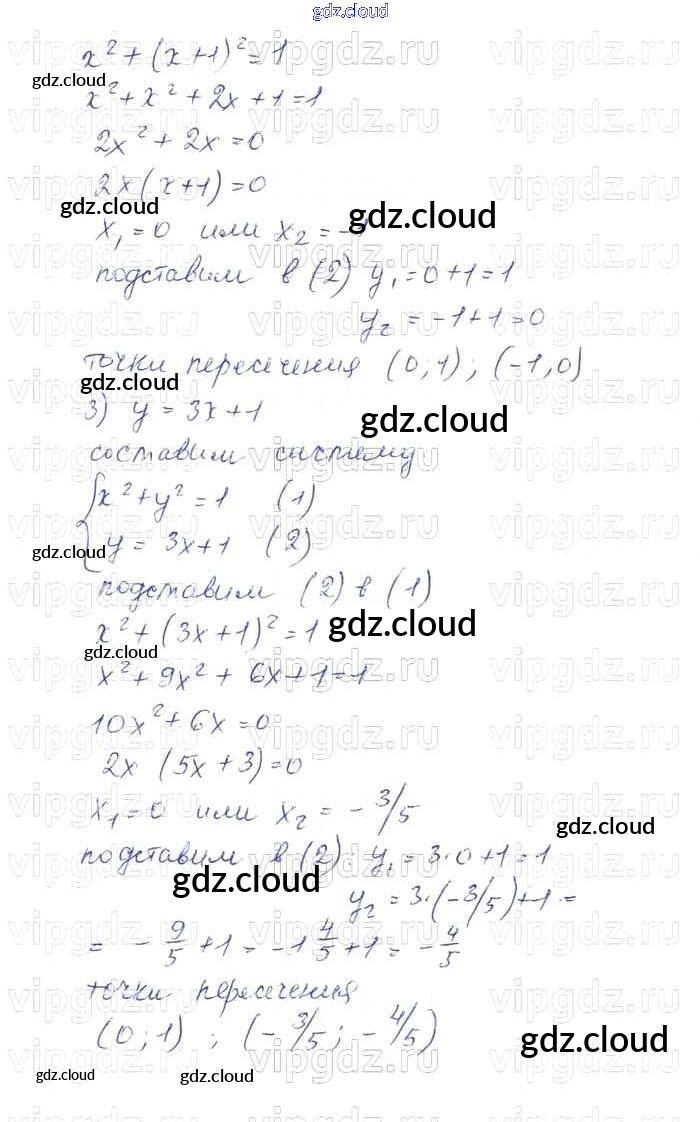 gdz.cloud
x² + (x+1)² = 1
gdz.cloud
x² + x² + 2x + 1 = 1
2x² + 2x = 0
2x(x+1) = 0
gdz.cloud
gdz.cloud
x₁ = 0 или x₂ = -1
подставим в (2) y₁ = 0+1 = 1
y₂ = -1+1 = 0
точки пересечения (0;1); (-1,0)
gdz.cloud
3) y = 3x+1
gdz.cloud
составим систему
{ x² + y² = 1 (1)
y = 3x+1 (2)
gdz.cloud
подставим (2) в (1)
x² + (3x+1)² = 1
gdz.cloud
gdz.cloud
x² + 9x² + 6x + 1 = 1
10x² + 6x = 0
2x (5x+3) = 0
x₁ = 0 или x₂ = - 3/5
gdz.cloud
подставим в (2) y₁ = 3·0+1 = 1
gdz.cloud
y₂ = 3·(-3/5)+1 =
= - 9/5 + 1 = -1 4/5 + 1 = - 4/5
точки пересечения
(0;1) ; (- 3/5; - 4/5)
gdz.cloud
gdz.cloud
gdz.cloud